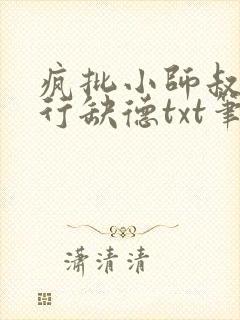 疯批小师叔
行缺德txt笔
潇清清